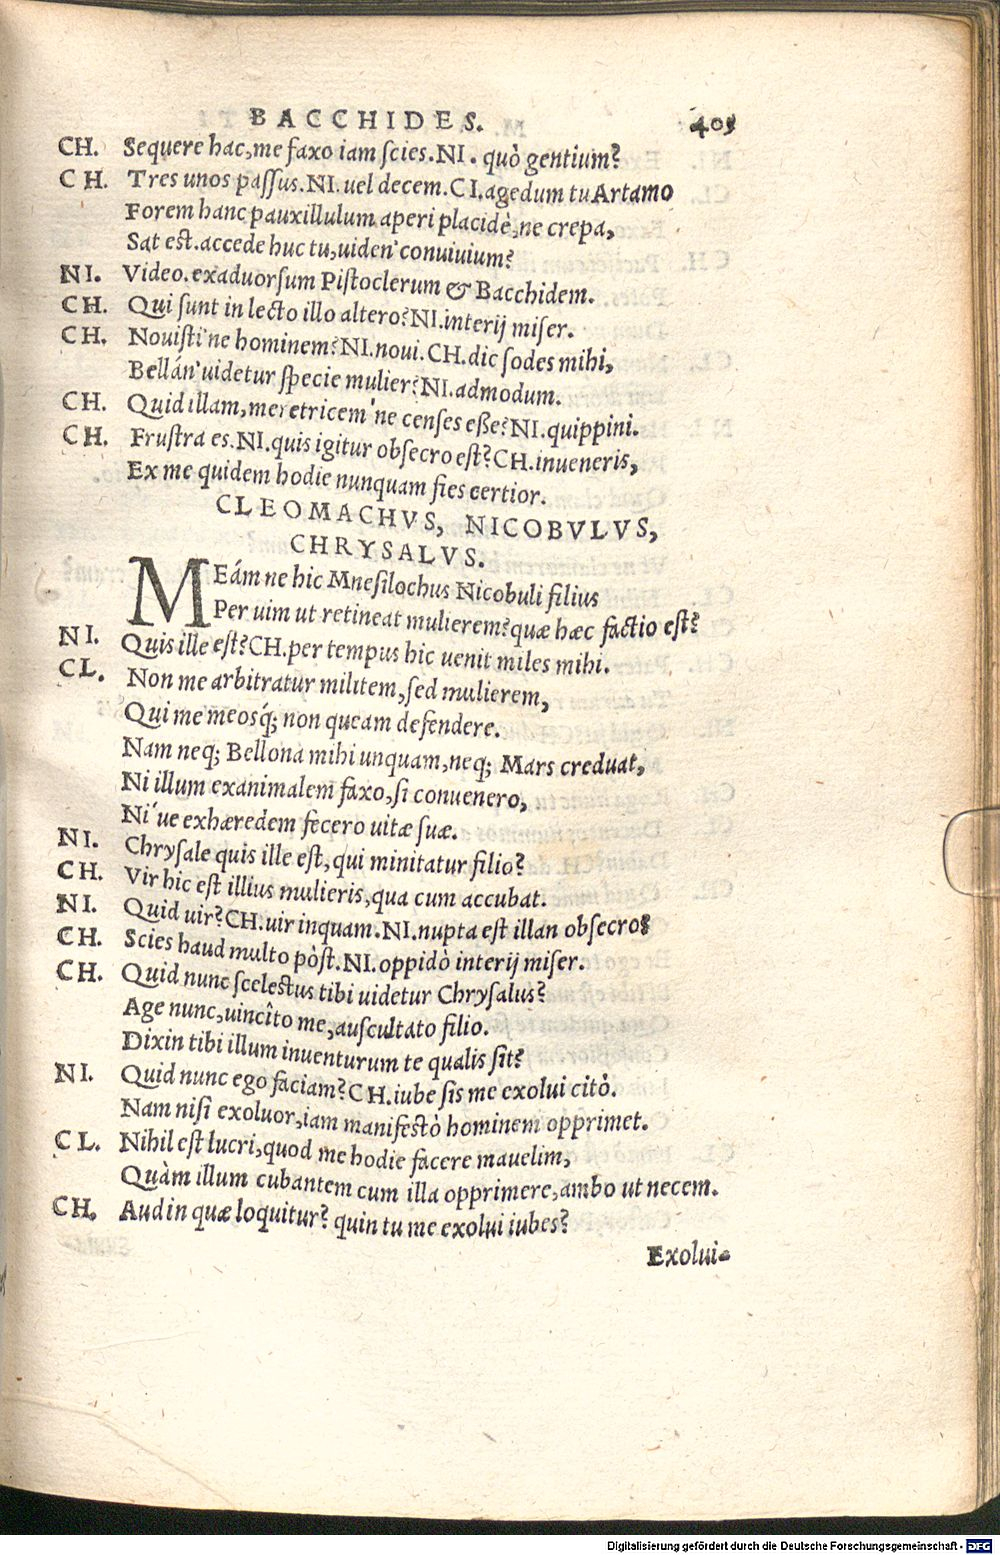 BACCHIDES. 405
CH. Sequere hac, me faxo iam scies. NI. quò gentium?
CH. Tres unos passus. NI. uel decem. CI. agedum tu Artamo
Forem hanc pauxillulum aperi placidè, ne crepa,
Sat est. accede huc tu, uiden' conuiuium?
NI. Video. exaduorsum Pistoclerum & Bacchidem.
CH. Qui sunt in lecto illo altero? NI. interij miser.
CH. Nouisti'ne hominem? NI. noui. CH. dic sodes mihi,
Bellán' uidetur specie mulier? NI. admodum.
CH. Quid illam, meretricem'ne censes esse? NI. quippini.
CH. Frustra es. NI. quis igitur obsecro est? CH. inueneris,
Ex me quidem hodie nunquam fies certior.
CLEOMACHVS, NICOBVLVS,
CHRYSALVS.
MEám ne hic Mnesilochus Nicobuli filius
Per uim ut retineat mulierem? quæ hæc factio est?
NI. Quis ille est? CH. per tempus hic uenit miles mihi.
CL. Non me arbitratur militem, sed mulierem,
Qui me meosq; non queam defendere.
Nam neq; Bellona mihi unquam, neq; Mars creduat,
Ni illum exanimalem faxo, si conuenero,
Ni'ue exhæredem fecero uitæ suæ.
NI. Chrysale quis ille est, qui minitatur filio?
CH. Vir hic est illius mulieris, qua cum accubat.
NI. Quid uir? CH. uir inquam. NI. nupta est illan obsecro?
CH. Scies haud multo pòst. NI. oppidò interij miser.
CH. Quid nunc scelestus tibi uidetur Chrysalus?
Age nunc, uincîto me, auscultato filio.
Dixin tibi illum inuenturum te qualis sit?
NI. Quid nunc ego faciam? CH. iube sis me exolui citò.
Nam nisi exoluor, iam manifestò hominem opprimet.
CL. Nihil est lucri, quod me hodie facere mauelim,
Quàm illum cubantem cum illa opprimere, ambo ut necem.
CH. Audin quæ loquitur? quin tu me exolui iubes?
Exolui-
Digitalisierung gefördert durch die Deutsche Forschungsgemeinschaft - DFG